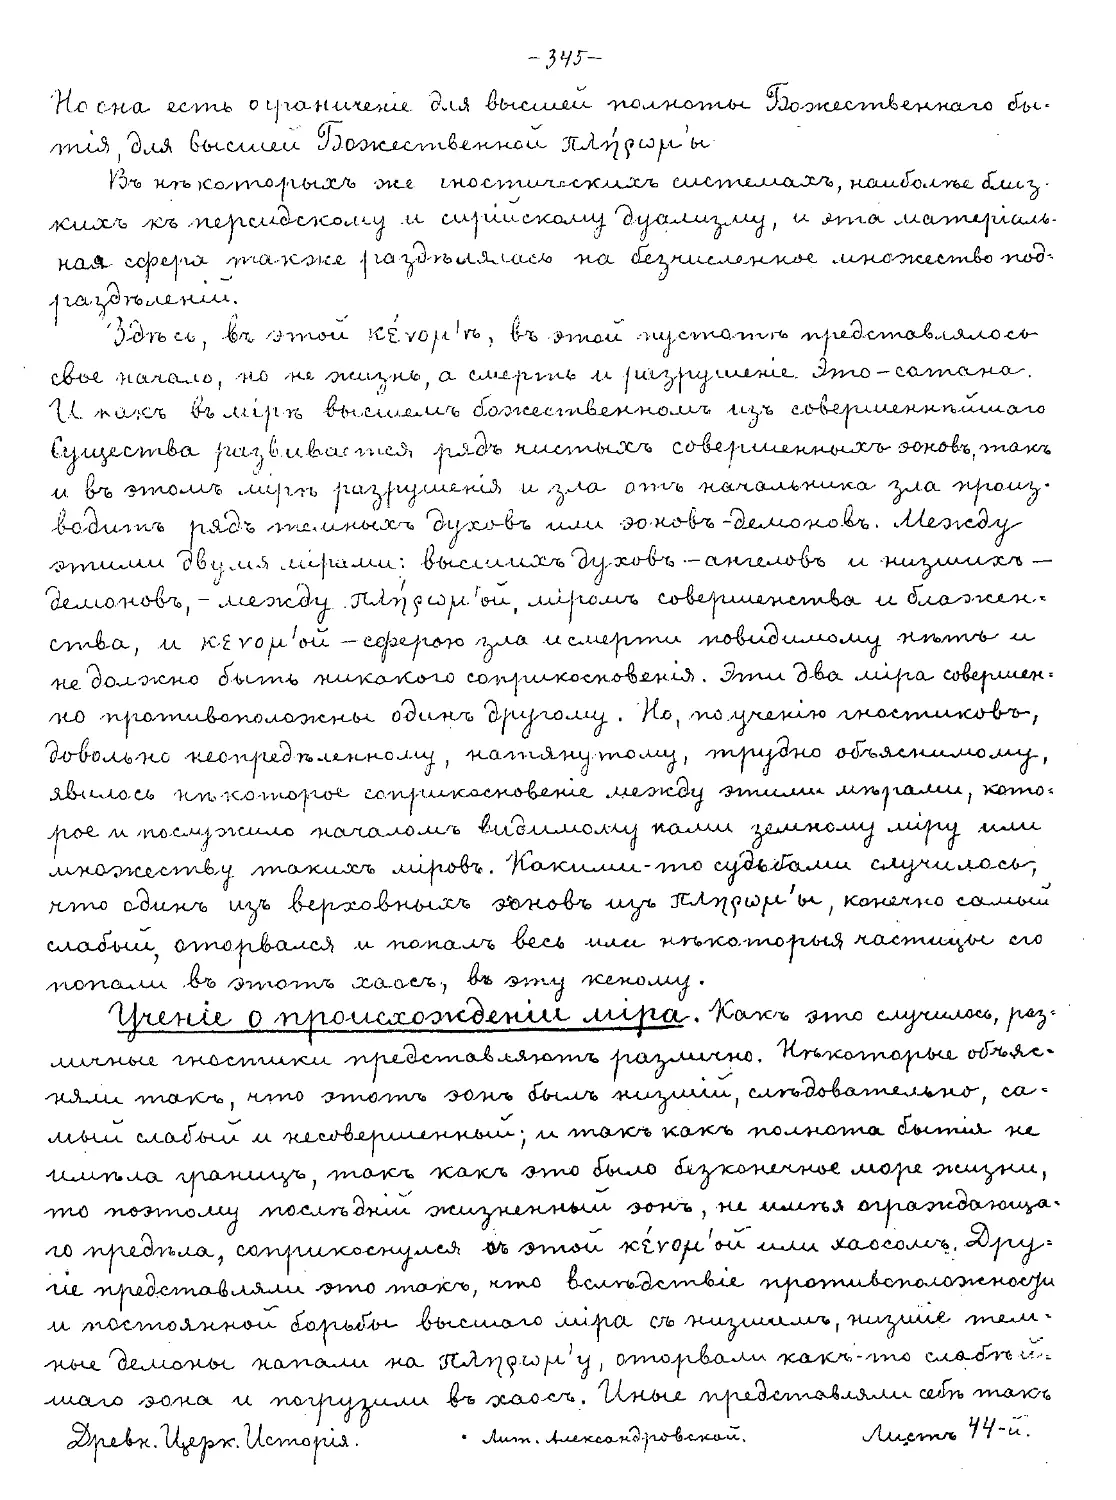 -345-
Но она есть ограниченіе для высшей полноты Божественнаго бы-
тія, для высшей Божественной πλήρωμ'ы
Въ нѣкоторыхъ же гностическихъ системахъ, наиболѣе близ-
кихъ къ персидскому и сирійскому дуализму, и эта матеріаль-
ная сфера также раздѣлялась на безчисленное множество под-
раздѣленій.
Здѣсь, въ этой κένομ'ѣ, въ этой пустотѣ представлялось
свое начало, но не жизнь, а смерть и разрушеніе. Это-сатана.
И какъ въ мірѣ высшемъ божественномъ изъ совершеннѣйшаго
Существа развивается рядъ чистыхъ совершенныхъ эоновъ, такъ
и въ этомъ мірѣ разрушенія и зла отъ начальника зла произ-
водитъ рядъ темныхъ духовъ или эоновъ-демоновъ. Между
этими двумя мірами: высшихъ духовъ-ангеловъ и низшихъ-
демоновъ,- между πλήρωμ'ой, міромъ совершенства и блажен-
ства, и κένομ'ой - сферою зла и смерти повидимому нѣтъ и
не должно быть никакого соприкосновенія. Эти два міра совершен-
но противоположны одинъ другому. Но, по ученію гностиковъ,
довольно неопредѣленному, натянутому, трудно объяснимому,
явилось нѣкоторое соприкосновеніе между этими мѣрами, кото-
рое и послужило началомъ видимому нами земному міру или
множеству такихъ міровъ. Какими-то судьбами случилось,
что одинъ изъ верховныхъ эоновъ изъ πληρωμ'ы, конечно самый
слабый, оторвался и попалъ весь или нѣкоторыя частицы его
попали въ этотъ хаосъ, въ эту кеному.
Ученіе о происхожденіи міра. Какъ это случилось, раз-
личные гностики представляютъ различно. Нѣкоторые объяс-
няли такъ, что этотъ эонъ былъ низшій, слѣдовательно, са-
мый слабый и несовершенный; и такъ какъ полнота бытія не
имѣла границъ, такъ какъ это было безконечное море жизни,
то поэтому послѣдній жизненный эонъ, не имѣя ограждающа-
го предѣла, соприкоснулся съ этой κένομ'ой или хаосомъ. Дру-
гіе представляли это такъ, что вслѣдствіе противоположности
и постоянной борьбы высшаго міра съ низшимъ, низшіе тем-
ные демоны напали на πληρωμ'у, оторвали какъ-то слабѣй-
шаго эона и погрузили въ хаосъ. Иные представляли себѣ такъ
Древн. Церк. Исторія. Лит. Александровской. Листъ 44-й.